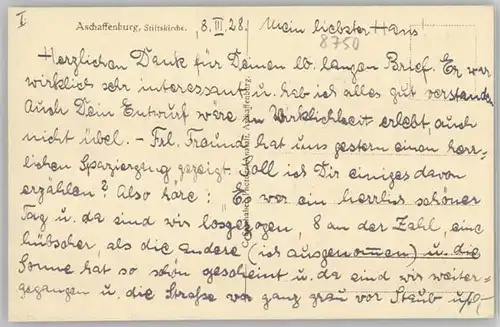 I.
Aschaffenburg, Stiftskirche. 8. III. 28. Mein liebster Hans
8750
Herzlichen Dank für Deinen lb. langen Brief. Er war
wirklich sehr interessant u. hab ich alles gut verstand.
Auch Dein Entwurf wäre in Wirklichkeit erlebt, auch
nicht übel. – Frl. Freund hat uns gestern einen herr-
lichen Spaziergang gezeigt. Soll ich Dir einiges davon
erzählen? Also höre: Es war ein herrlich schöner
Tag u. da sind wir losgezogen, 8 an der Zahl, eine
hübscher, als die andere (ich ausgenommen) u. die
Sonne hat so schön gescheint u. da sind wir weiter-
gegangen u. die Straße war ganz grau vor Staub u.